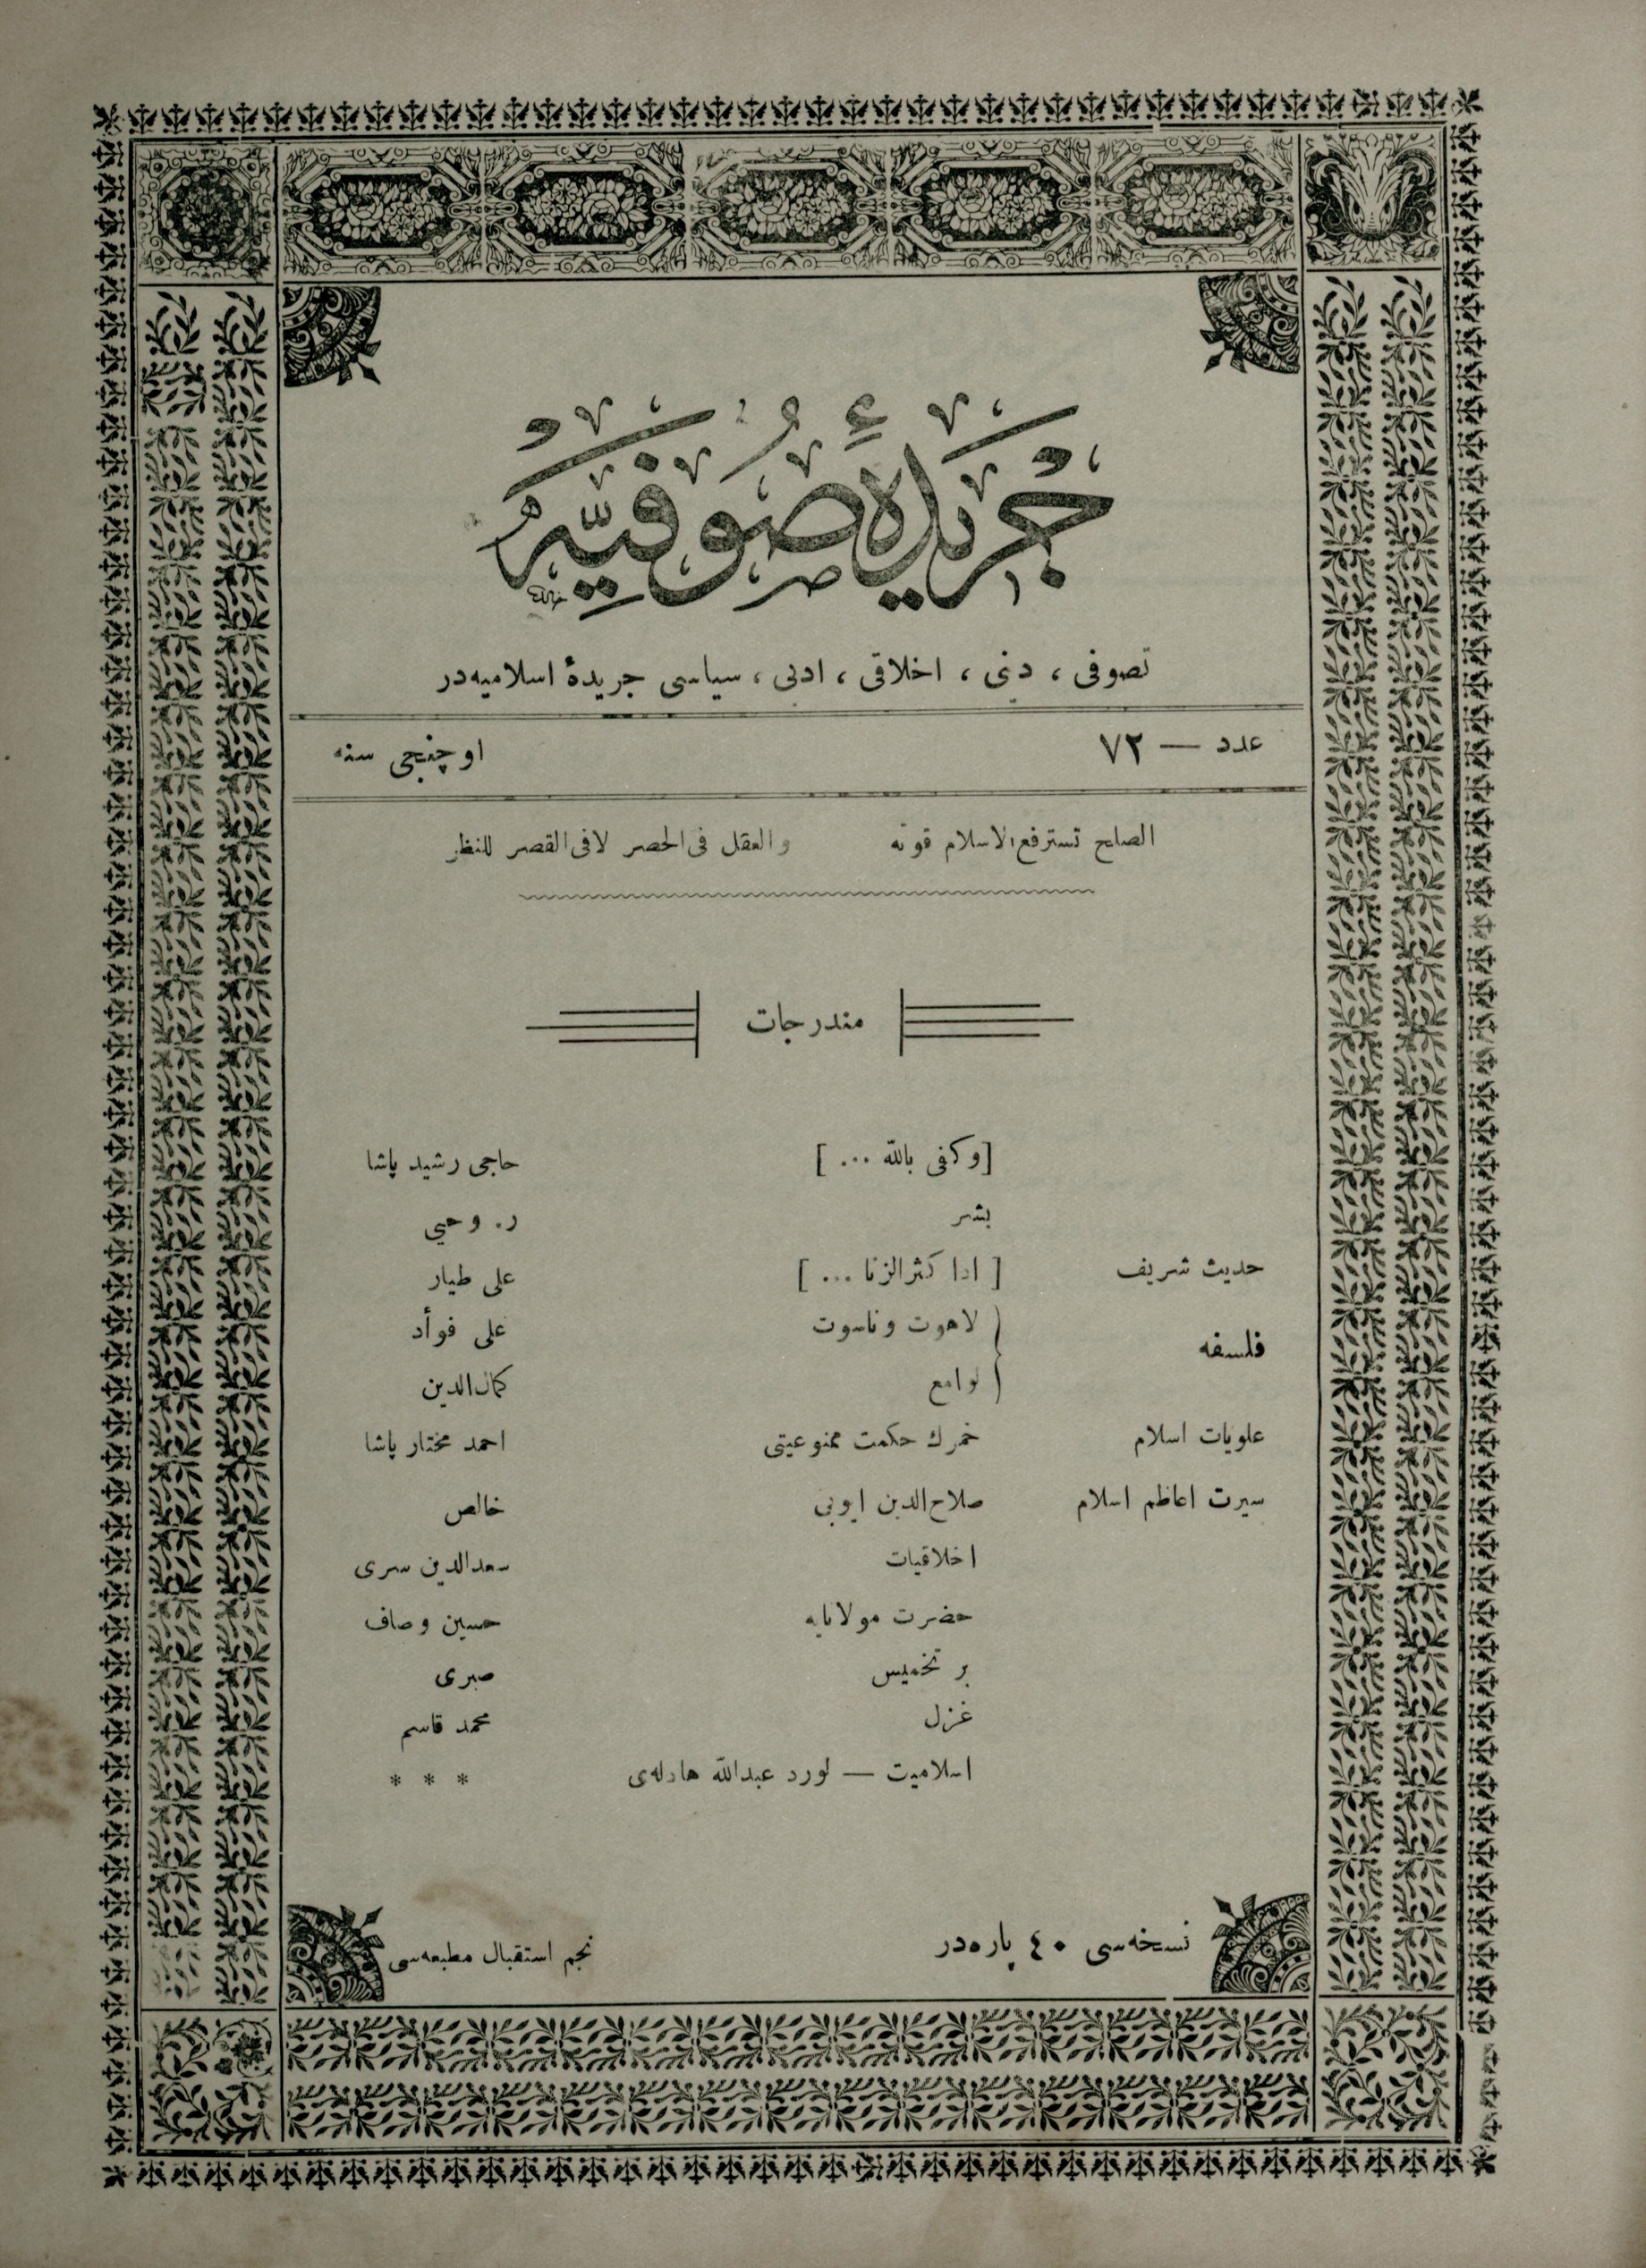 جريدۀ صوفيه
تصوفى ، دينى ، اخلاقى ، ادبى ، سياسى جريدۀ اسلاميه‌در
عدد — ٧٢ اوچنجى سنه
الصلح تسترفع الاسلام قوته والعقل فى الحصر لا فى القصر للنظر
مندرجات
[وكفى بالله ... ] حاجى رشيد پاشا
بشر ر. وحيى
حديث شريف [ اذا كثر الزنا ... ] على طيار
فلسفه
لاهوت و ناسوت على فوأد
لوامع كمال‌الدين
علويات اسلام خمرك حكمت ممنوعيتى احمد مختار پاشا
سيرت اعاظم اسلام صلاح‌الدين ايوبى خالص
اخلاقيات سعدالدين سرى
حضرت مولانايه حسين وصاف
بر تخميس صبرى
غزل محمد قاسم
اسلاميت — لورد عبدالله هادله‌ى * * *
نسخه‌سى ٤٠ پاره‌در نجم استقبال مطبعه‌سى